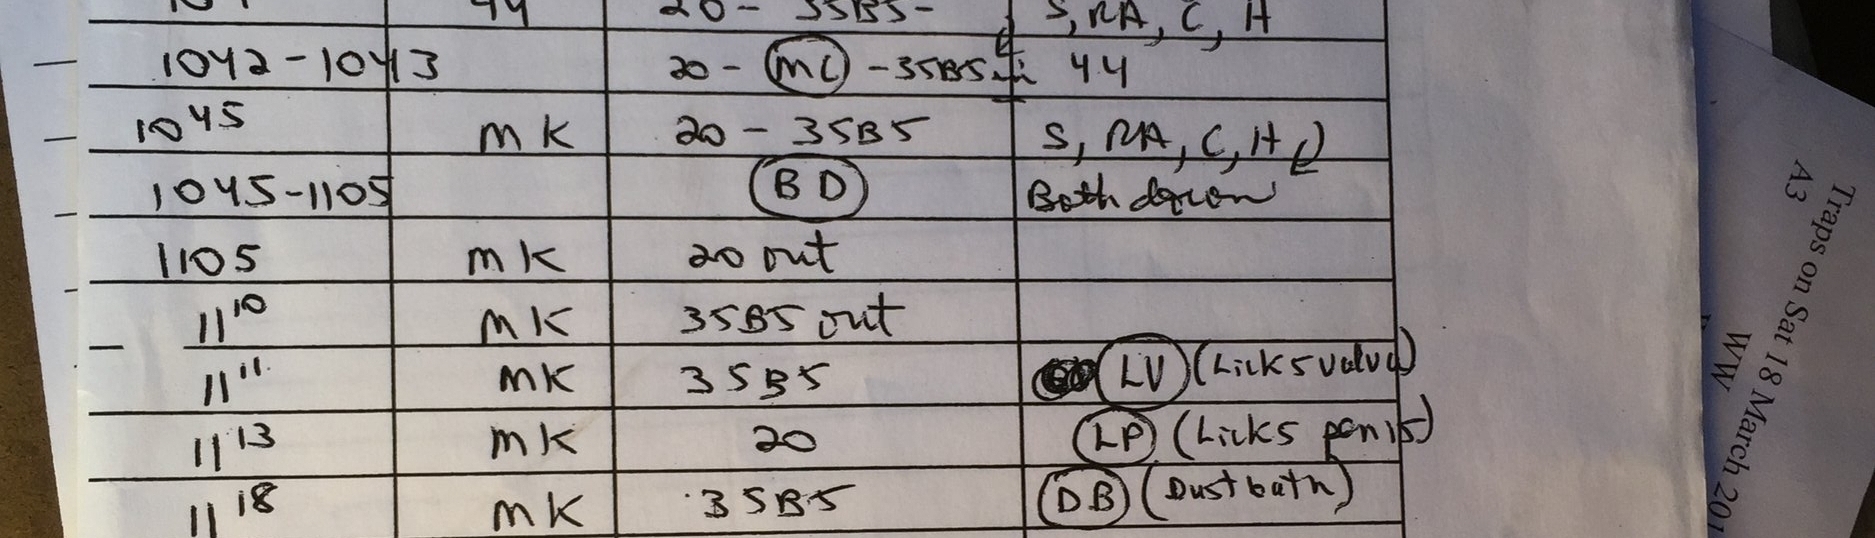 44 20 - 35B5 - S, RA, C, H
1042 - 1043 20 - MC - 35B5 44
1045 MK 20 - 35B5 S, RA, C, H
1045-1105 BD Both down
1105 MK 20 out
11 10 MK 35B5 out
11 11 MK 35B5 LV (Licks vulva)
11 13 MK 20 LP (Licks penis)
11 18 MK 35B5 DB (Dustbath)
Traps on Sat 18 March 201
A3
WW